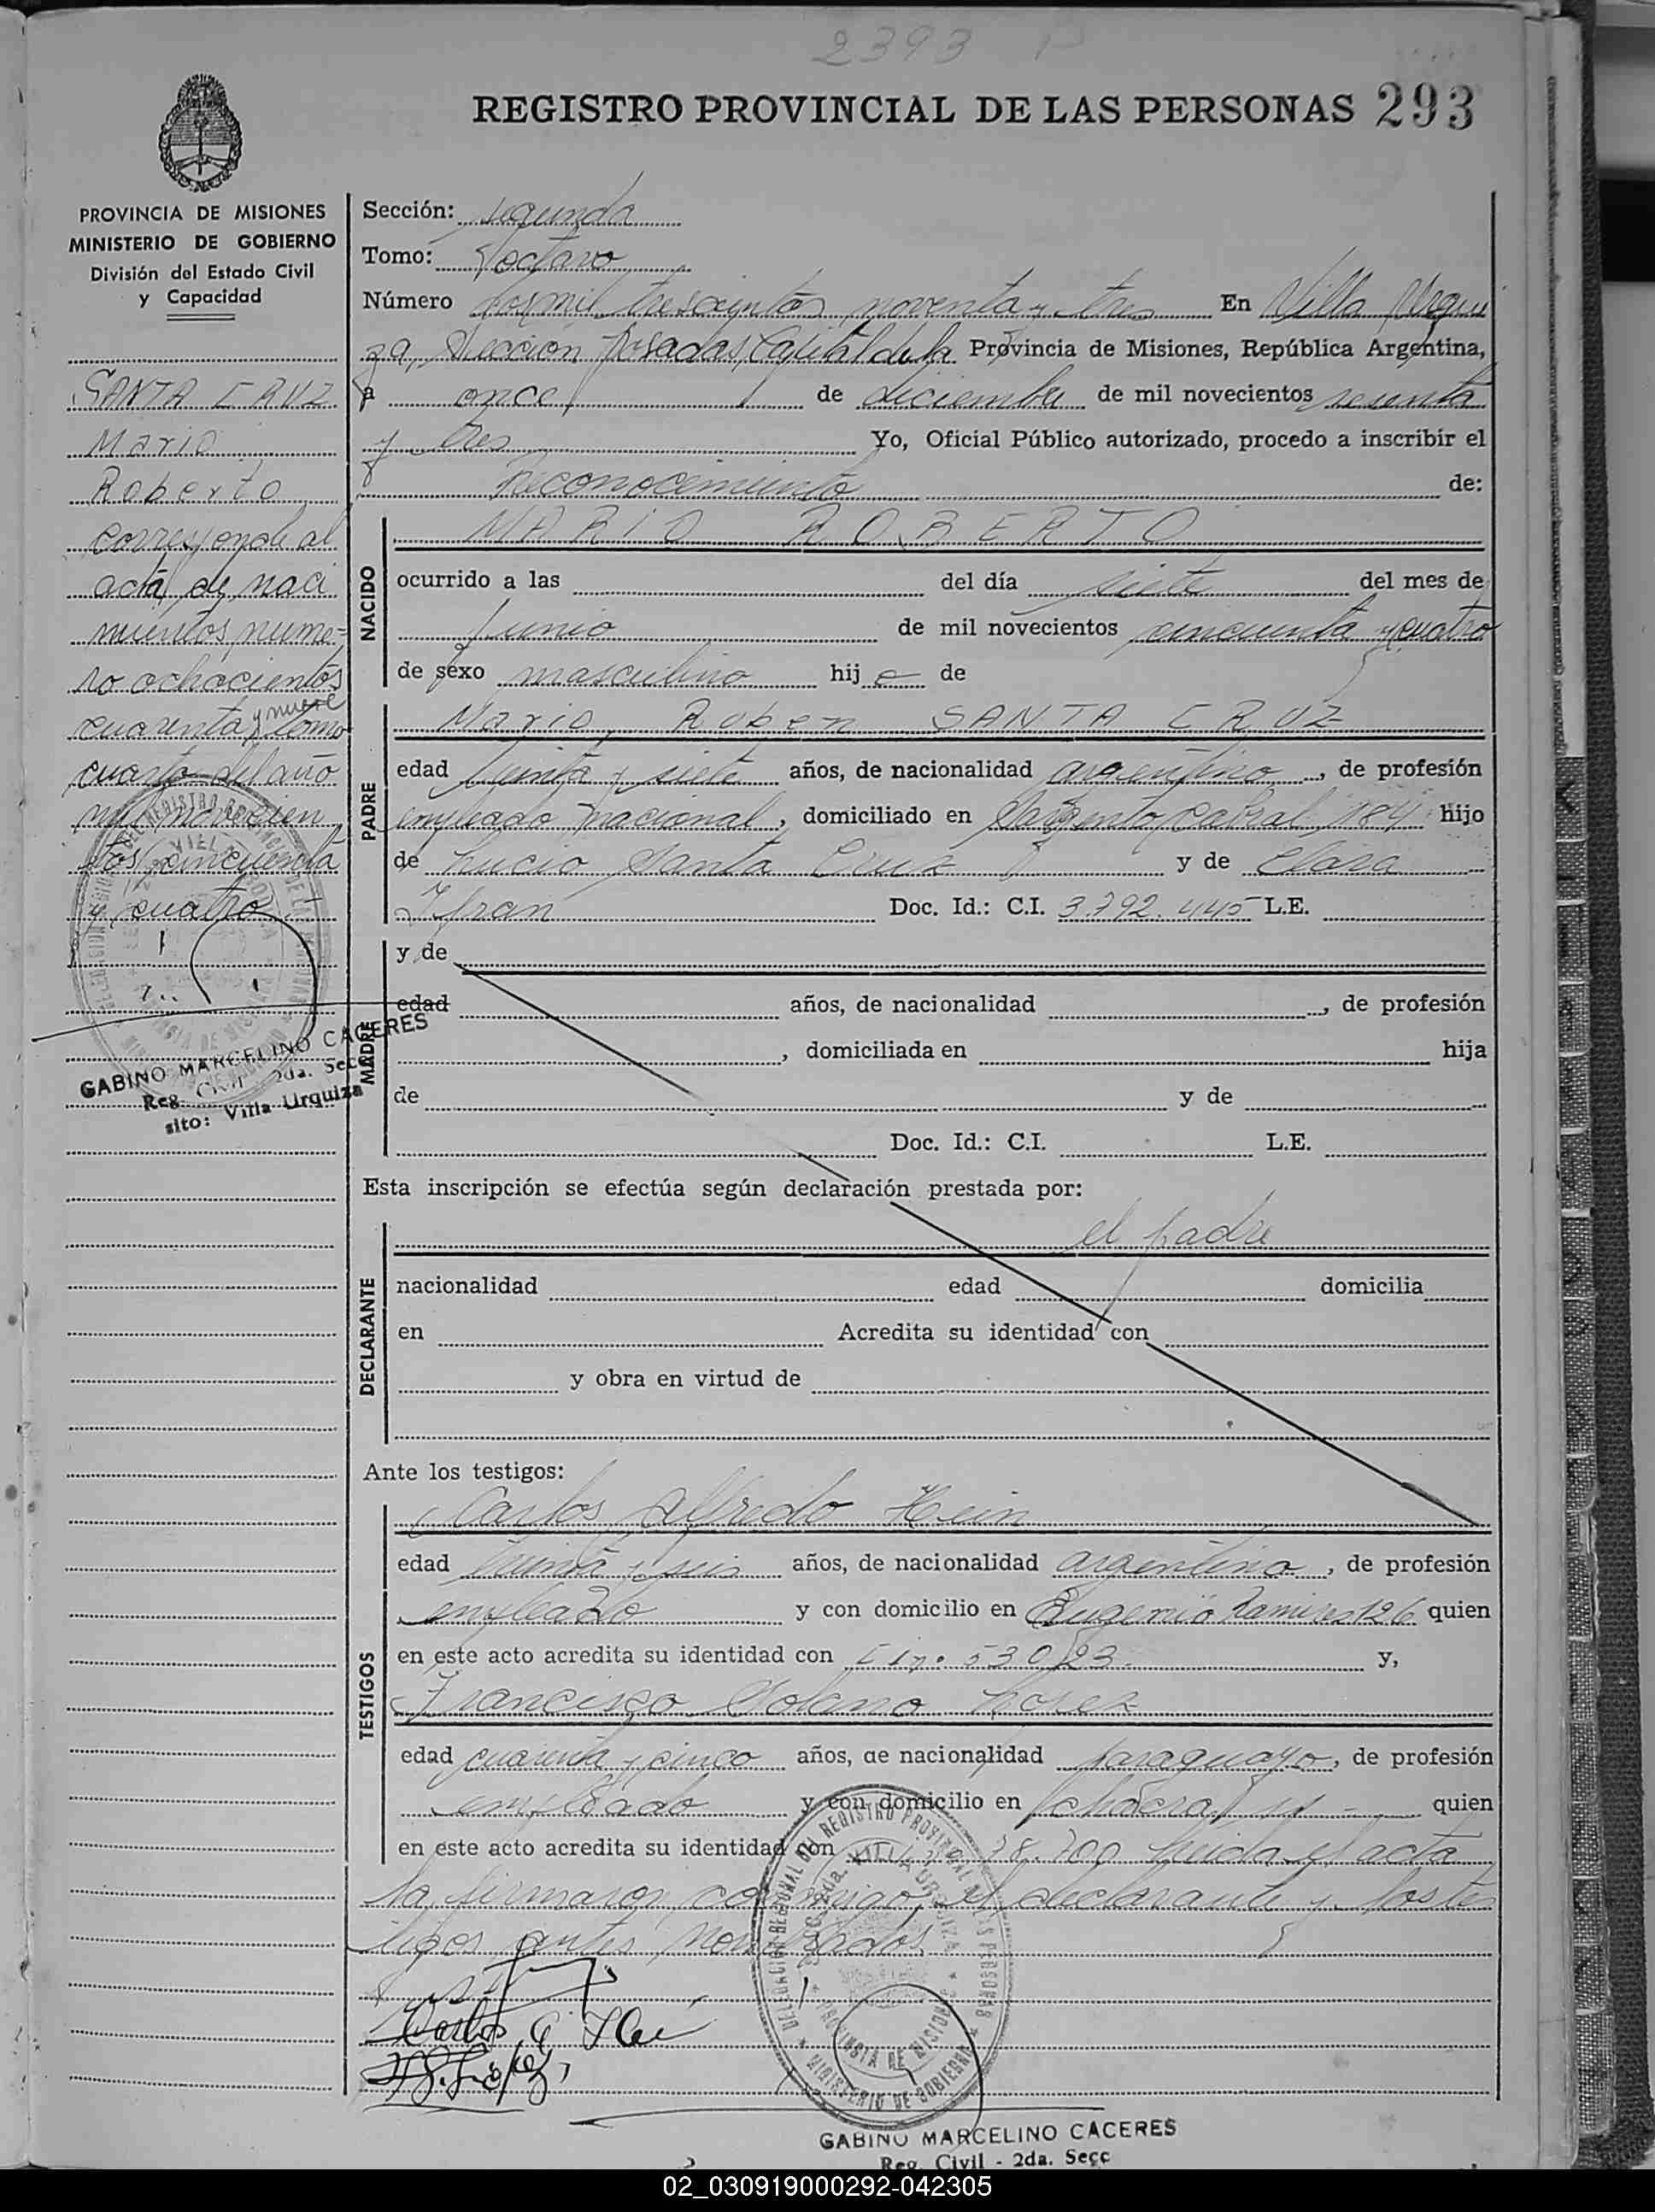 2393 P
REGISTRO PROVINCIAL DE LAS PERSONAS 293
PROVINCIA DE MISIONES
MINISTERIO DE GOBIERNO
División del Estado Civil
y Capacidad
SANTA CRUZ
Mario
Roberto
corresponde al
acta de naci
mientos nume-
ro ochocientos
cuarenta y nueve tomo
cuarto del año
mil novecien
tos cincuenta
y cuatro
GABINO MARCELINO CACERES
Reg. Civil 2da. Secc
sito: Villa Urquiza
Sección: segunda
Tomo: octavo
Número dos mil trescientos noventa y tres En Villa Urqui
za, Sección Posadas, Capital de la Provincia de Misiones, República Argentina,
a once de diciembre de mil novecientos sesenta
y tres Yo, Oficial Público autorizado, procedo a inscribir el
Reconocimiento de:
NACIDO
MARIO ROBERTO
ocurrido a las del día siete del mes de
Junio de mil novecientos cincuenta y cuatro
de sexo masculino hijo de
PADRE
Mario Ruben SANTA CRUZ
edad treinta y siete años, de nacionalidad argentino, de profesión
empleado nacional, domiciliado en Sargento Cabral 184 hijo
de Lucio Santa Cruz y de Clara
Ifran Doc. Id.: C.I. 3.792.445 L.E.
MADRE
y de
edad años, de nacionalidad , de profesión
, domiciliada en hija
de y de
Doc. Id.: C.I. L.E.
Esta inscripción se efectúa según declaración prestada por:
DECLARANTE
el padre
nacionalidad edad domicilia
en Acredita su identidad con
y obra en virtud de
Ante los testigos:
TESTIGOS
Carlos Alfredo Hein
edad treinta y seis años, de nacionalidad argentino, de profesión
empleado y con domicilio en Eugenio Ramirez 126 quien
en este acto acredita su identidad con 53023 y,
Francisco Solano Lopez
edad cuarenta y cinco años, de nacionalidad paraguayo, de profesión
empleado y con domicilio en chacra quien
en este acto acredita su identidad con 38.700 Leida el acta
la firmaron conmigo, el declarante y los tes
tigos antes nombrados
DELEGACION REGIONAL DEL REGISTRO PROVINCIAL DE LAS PERSONAS
SECC. 2da. VILLA URQUIZA
PROVINCIA DE MISIONES
MINISTERIO DE GOBIERNO
GABINO MARCELINO CACERES
Reg. Civil - 2da. Secc
02_030919000292-042305